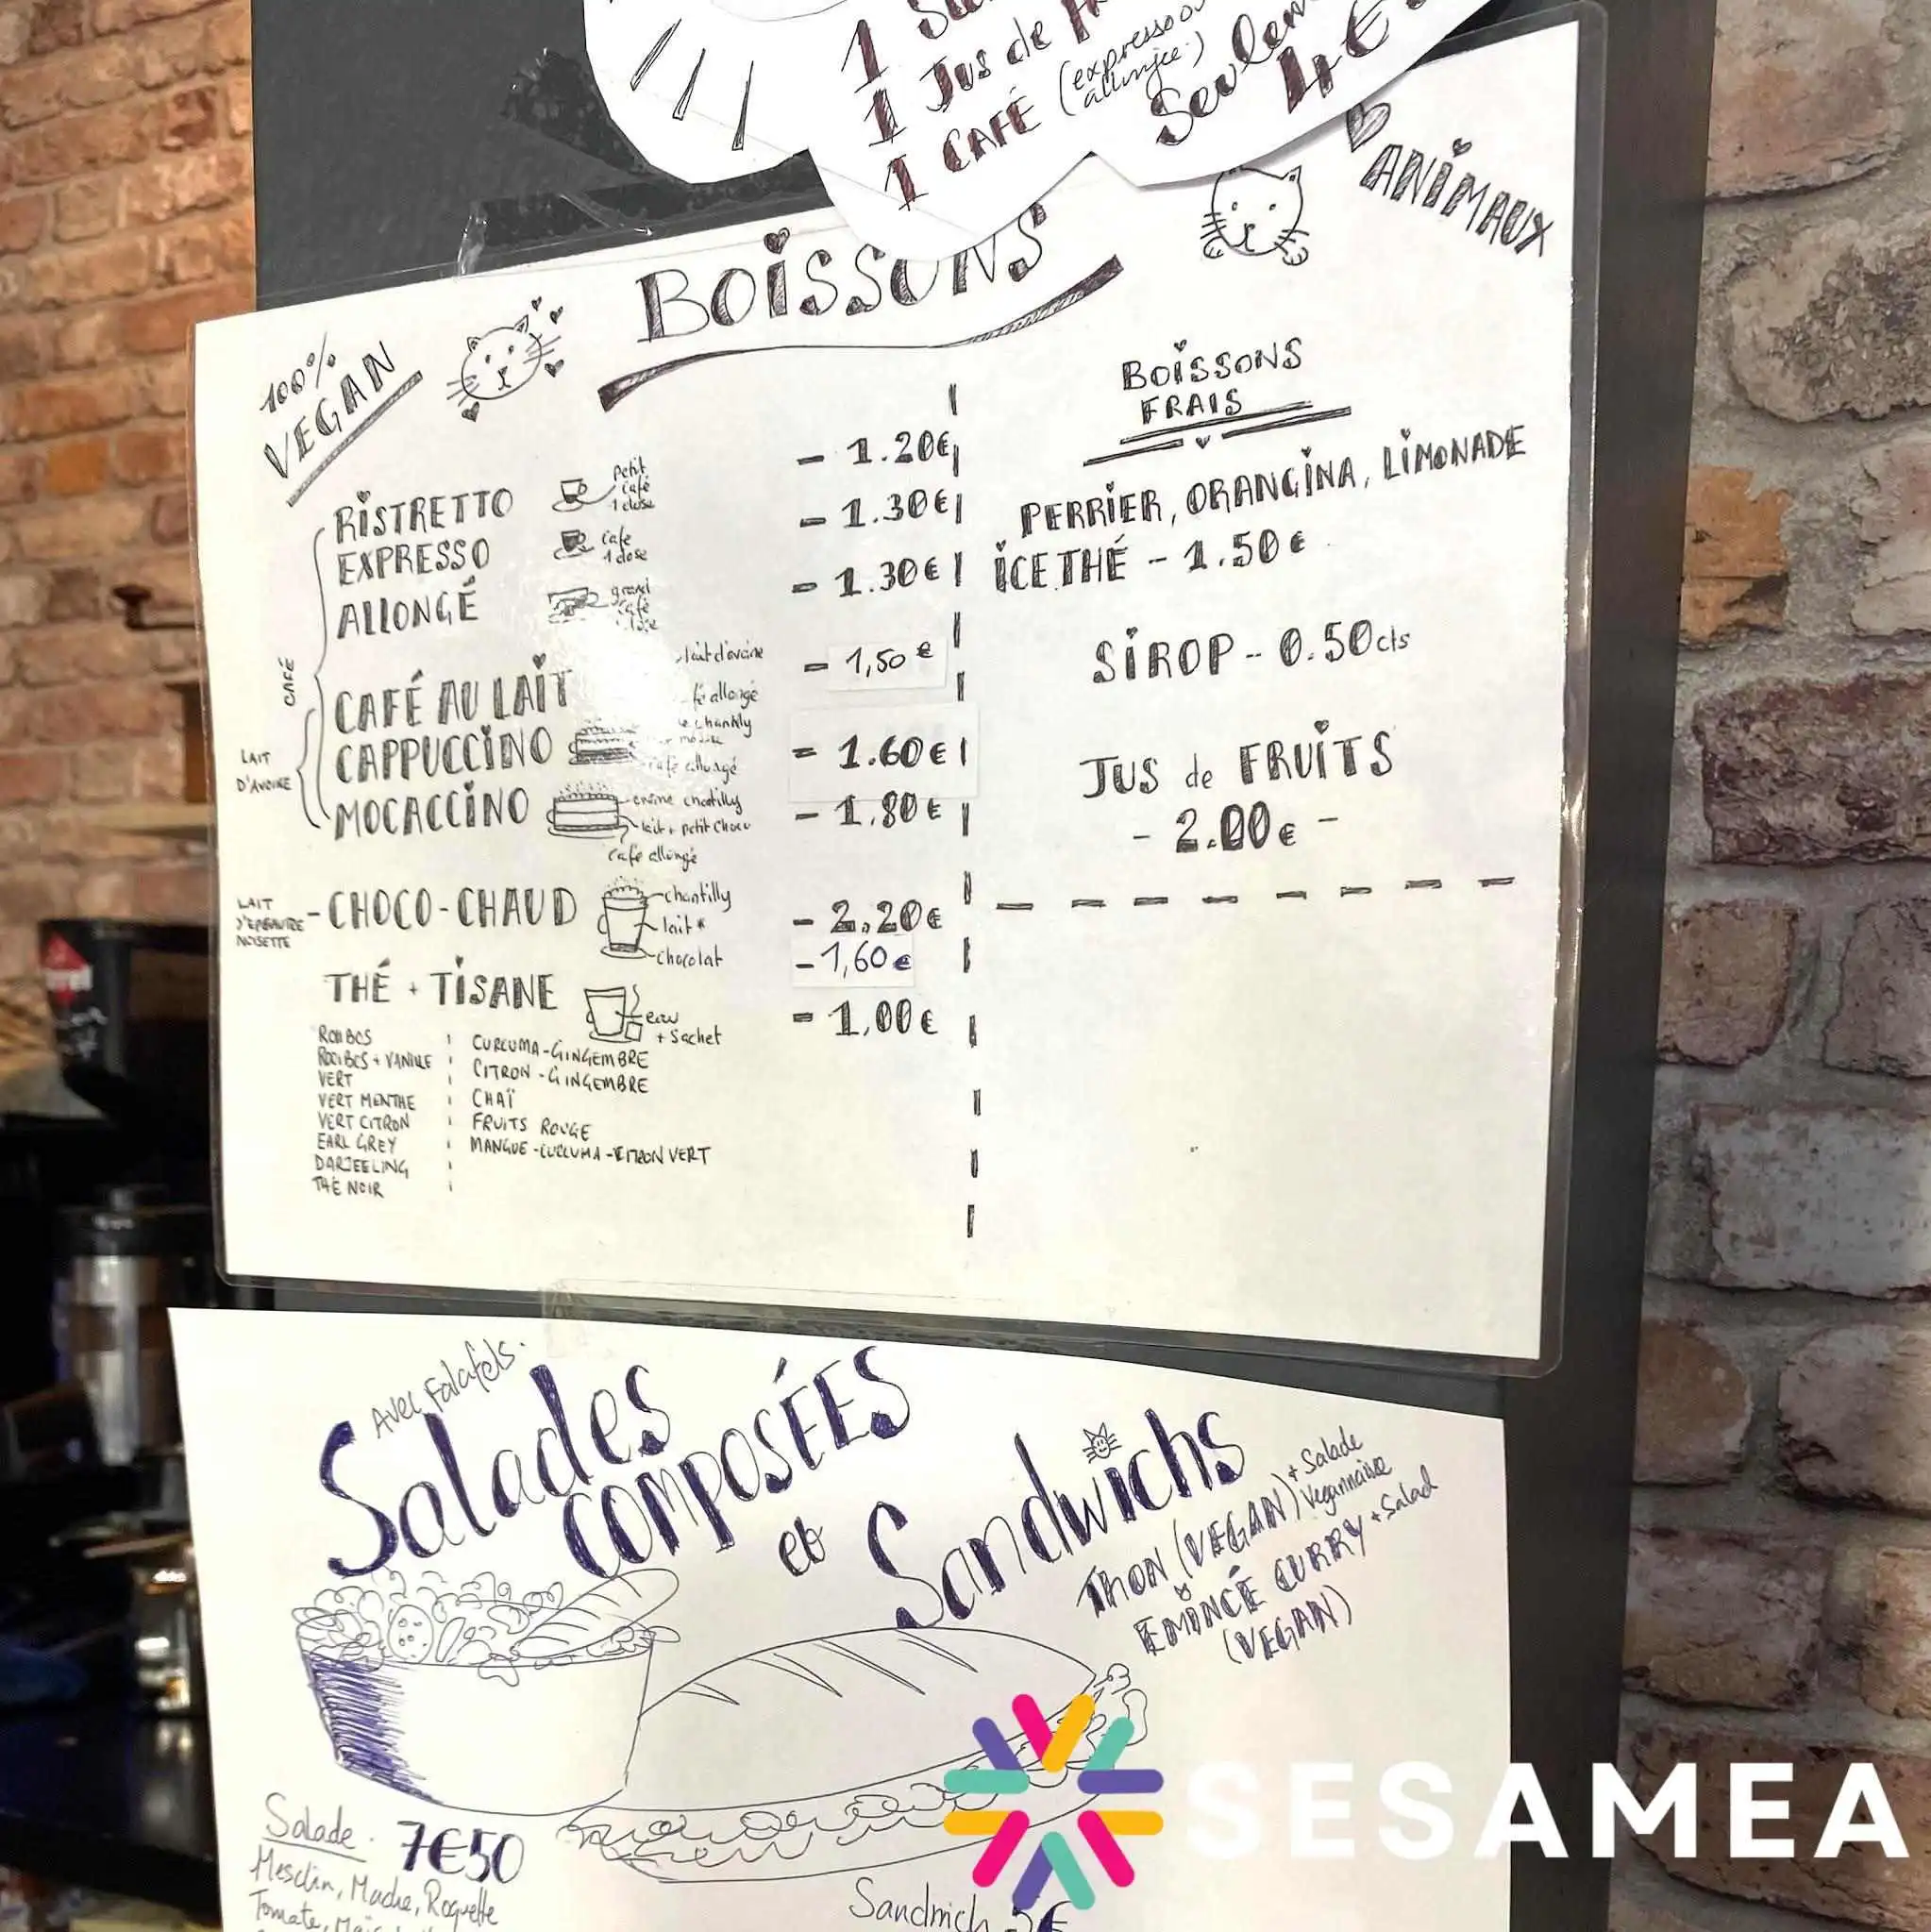 1
1 Jus de
(expresso ou
allongée)
1 CAFÉ
Seulem
4€
ANIMAUX
BOISSONS
100%
VEGAN
CAFÉ
RISTRETTO petit café 1 dose - 1.20€
EXPRESSO café 1 dose - 1.30€
ALLONGÉ grand café - 1.30€
LAIT D'AVOINE
CAFÉ AU LAIT lait d'avoine - 1,50€
allongé
CAPPUCCINO café allongé = 1.60€
MOCACCINO crème chantilly - 1.80€
lait + petit choco
café allongé
LAIT
D'EPEAUTRE
NOISETTE
- CHOCO-CHAUD - 2,20€
chantilly
lait*
chocolat
- 1,60€
THÉ + TISANE - 1,00€
eau
+ sachet
ROIBOS
ROOIBOS + VANILLE
VERT
VERT MENTHE
VERT CITRON
EARL GREY
DARJEELING
THÉ NOIR
CURCUMA-GINGEMBRE
CITRON-GINGEMBRE
CHAÏ
FRUITS ROUGE
MANGUE-CURCUMA-CITRON VERT
BOISSONS
FRAIS
PERRIER, ORANGINA, LIMONADE
ICE THÉ - 1.50€
SIROP - 0.50cts
JUS de FRUITS
- 2.00€ -
Avec Falafels.
Salades
COMPOSÉES
et Sandwichs
THON (VEGAN) + Salade
Vegannaise
EMINCÉ CURRY + Salad
(VEGAN)
Salade. 7€50
Mesclin, Mache, Roquette
Tomate,
Sandwich 5€
SESAMEA